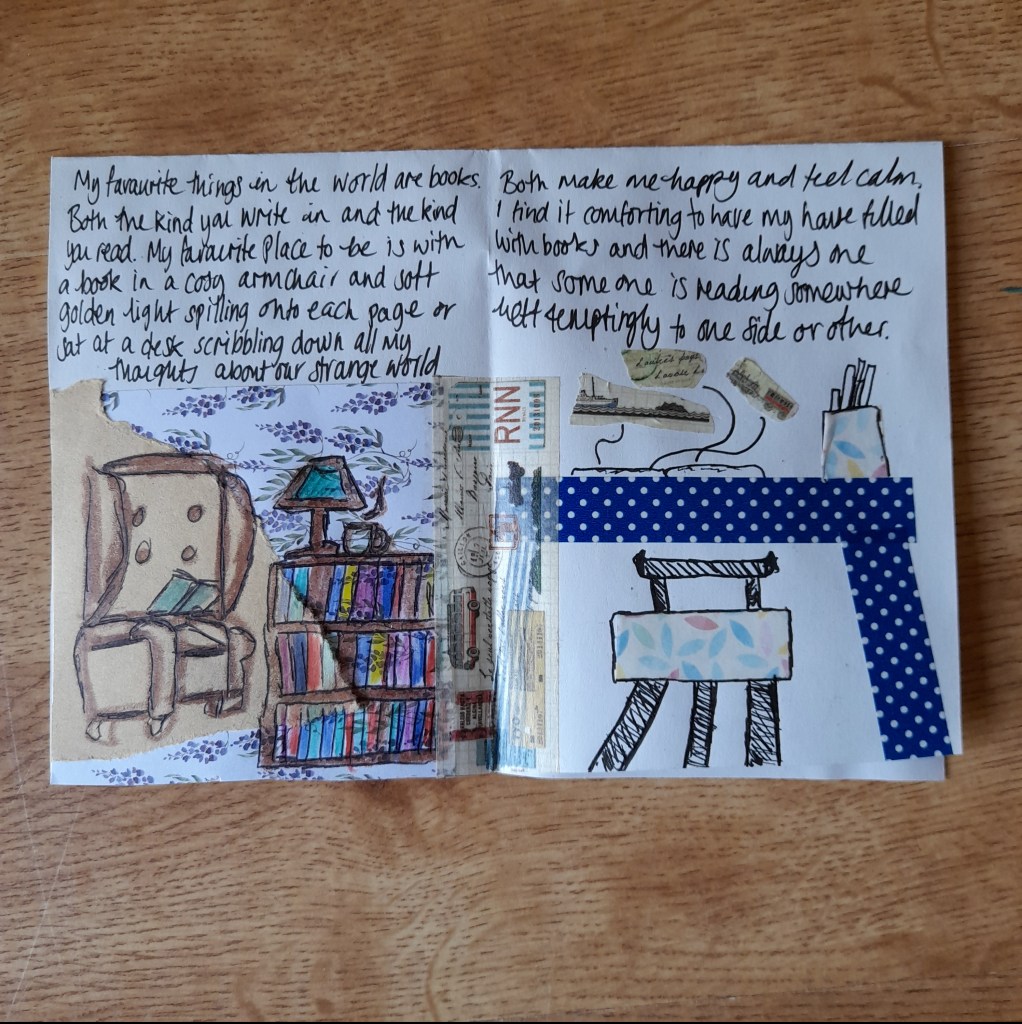 My favourite things in the world are books.
Both the kind you write in and the kind
you read. My favourite place to be is with
a book in a cosy armchair and soft
golden light spilling onto each page or
sat at a desk scribbling down all my
thoughts about our strange world
Both make me happy and feel calm.
I find it comforting to have my house filled
with books and there is always one
that someone is reading somewhere
left temptingly to one side or other.
RNN